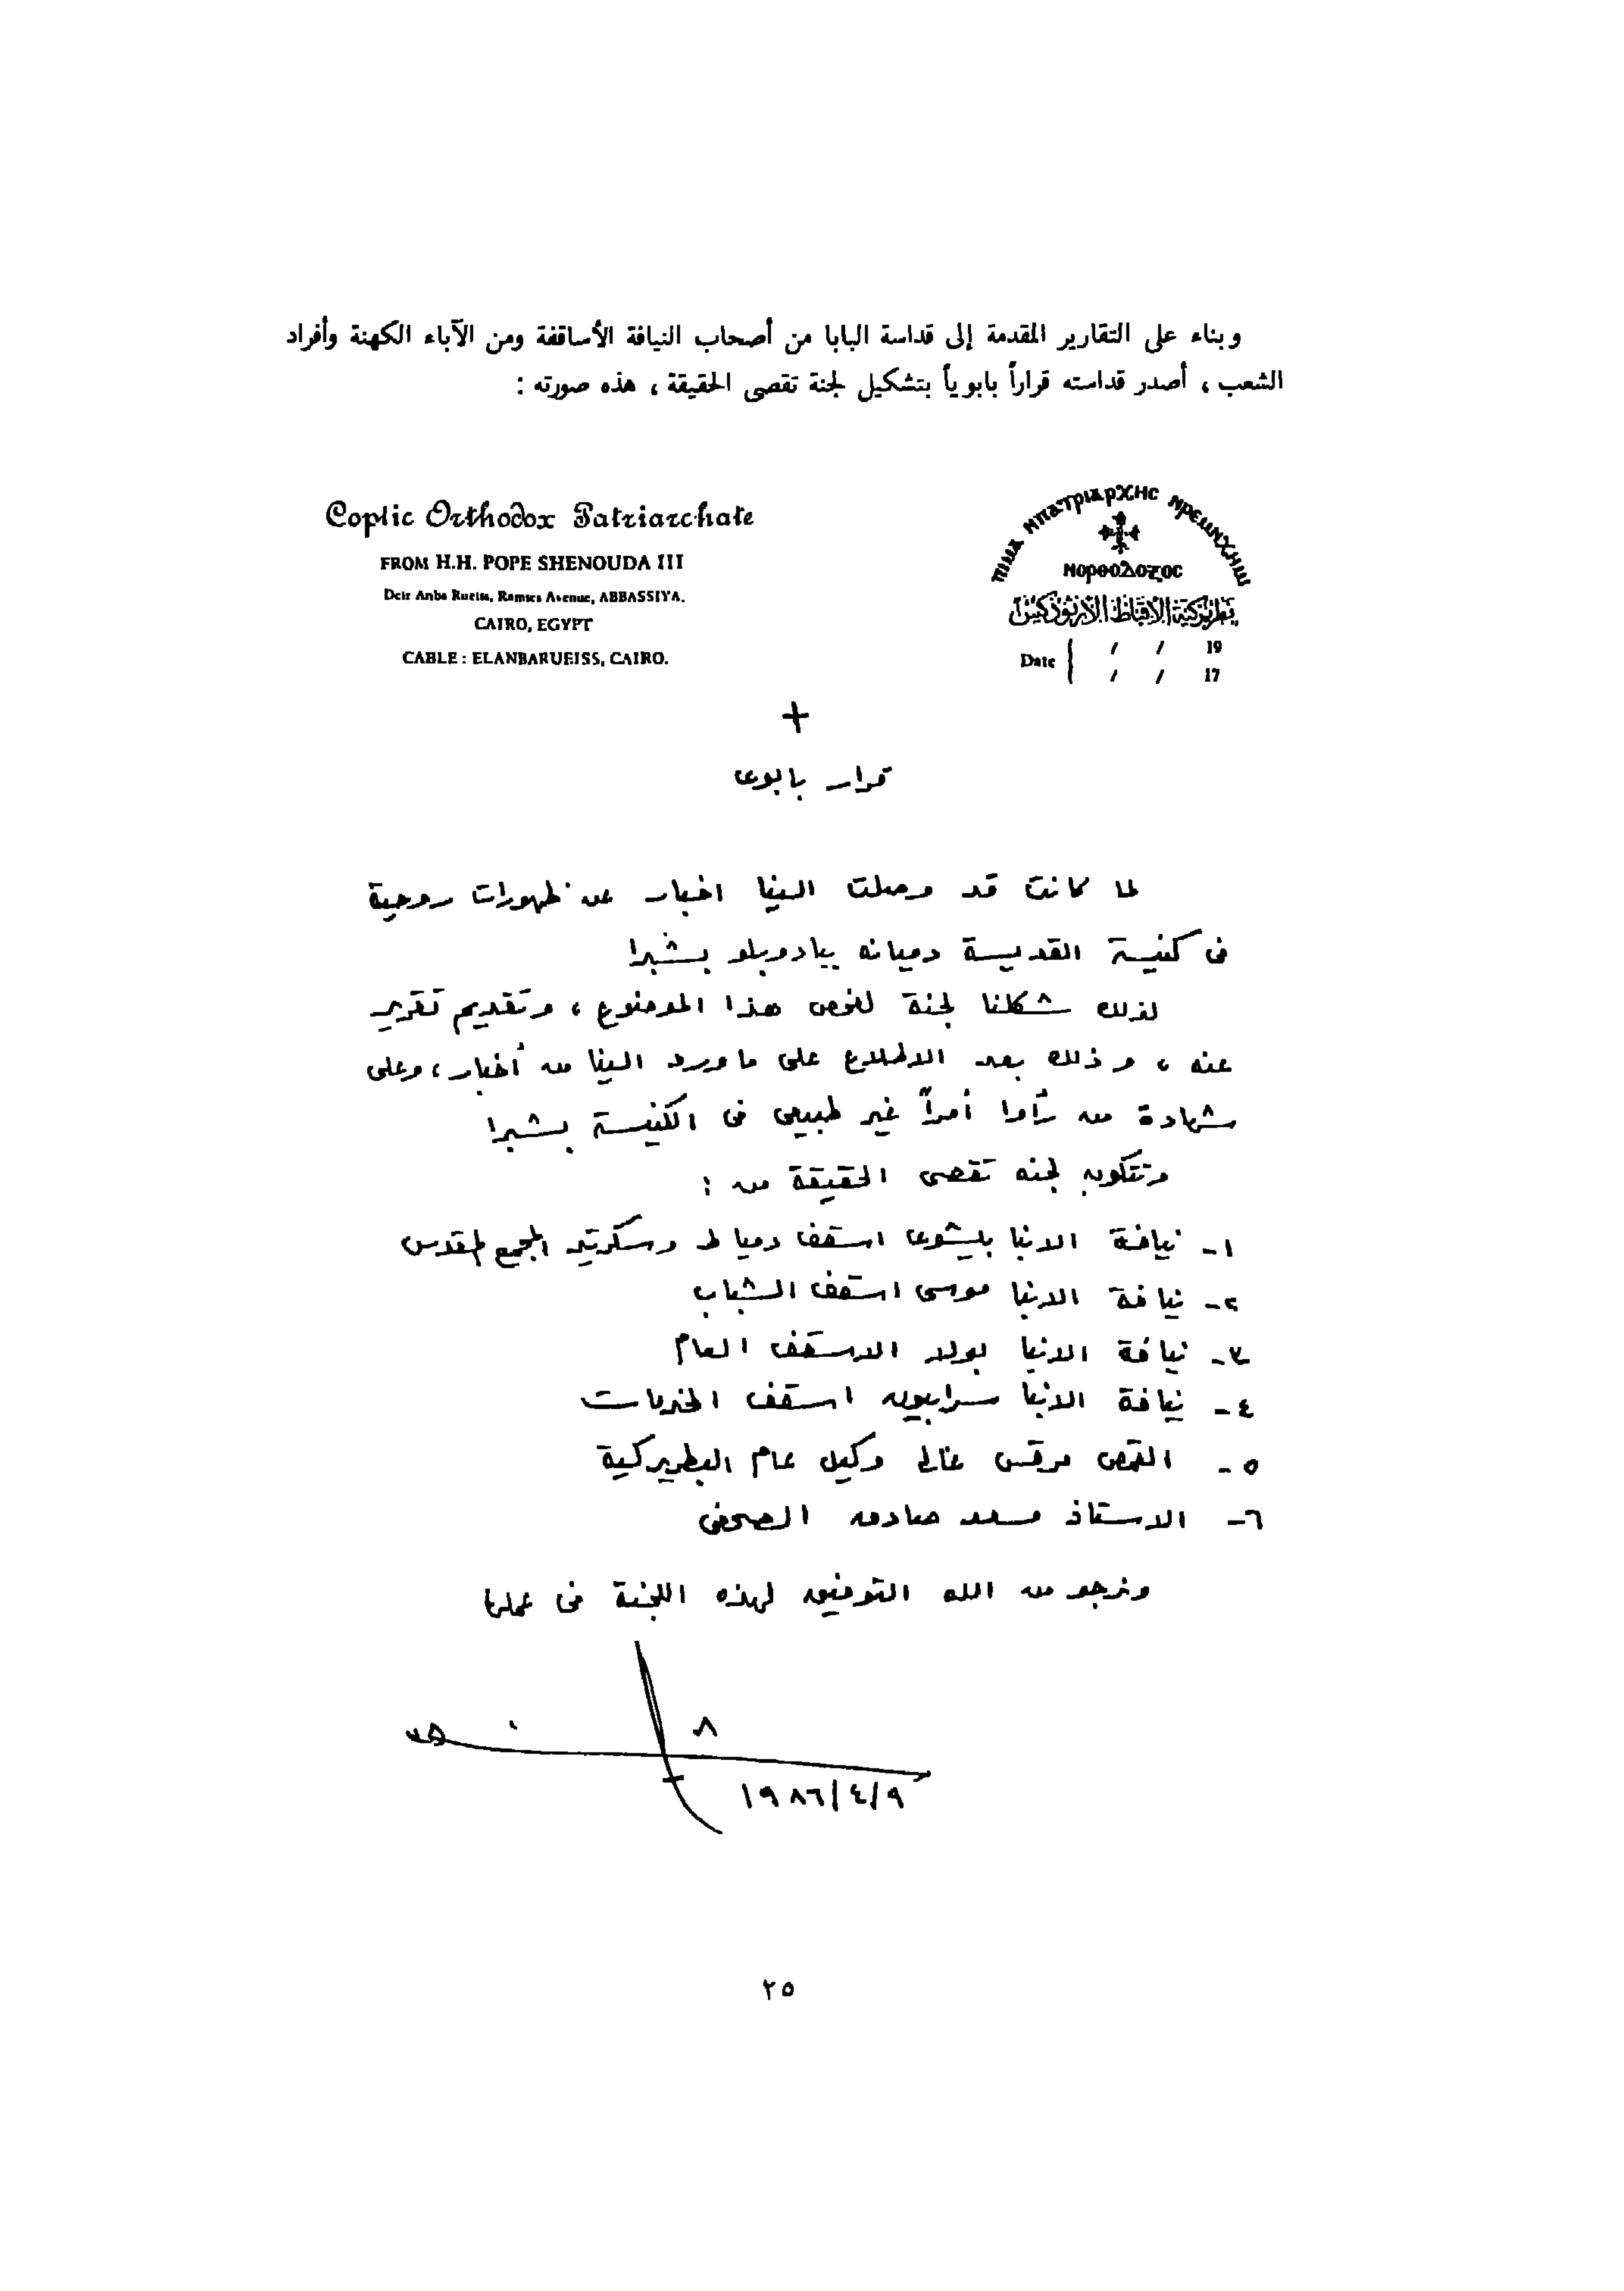 وبناء على التقارير المقدمة إلى قداسة البابا من أصحاب النيافة الأساقفة ومن الآباء الكهنة وأفراد
الشعب ، أصدر قداسته قراراً بابوياً بتشكيل لجنة تقصى الحقيقة ، هذه صورته :
Coptic Orthodox Patriarchate
FROM H.H. POPE SHENOUDA III
Deir Anba Rueiss, Ramses Avenue, ABBASSIYA.
CAIRO, EGYPT
CABLE : ELANBARUEISS, CAIRO.
ⲡⲓⲙⲁ ⲙⲡⲁⲧⲣⲓⲁⲣⲭⲏⲥ ⲛⲣⲉⲙⲛⲭⲏⲙⲓ
ⲛⲟⲣⲑⲟⲇⲟⲝⲟⲥ
بطريركية الأقباط الأرثوذكس
Date / / 19
/ / 17
+
قرار بابوى
لما كانت قد وصلت الينا اخبار عن ظهورات روحية
فى كنيسة القديسة دميانه ببابادوبلو بشبرا
لذلك شكلنا لجنة لفحص هذا الموضوع ، وتقديم تقرير
عنه ، وذلك بعد الاطلاع على ما ورد الينا من أخبار ، وعلى
شهادة من رأوا أمراً غير طبيعى فى الكنيسة بشبرا
وتتكون لجنه تقصى الحقيقة من :
١- نيافة الانبا بيشوى اسقف دمياط وسكرتير المجمع المقدس
٢- نيافة الانبا موسى اسقف الشباب
٣- نيافة الانبا بولا الاسقف العام
٤- نيافة الانبا سرابيون اسقف الخدمات
٥- القمص مرقس غالى وكيل عام البطريركية
٦- الاستاذ مسعد صادق الصحفى
ونرجو من الله التوفيق لهذه اللجنة فى عملها
١٩٨٦/٤/٩
٢٥